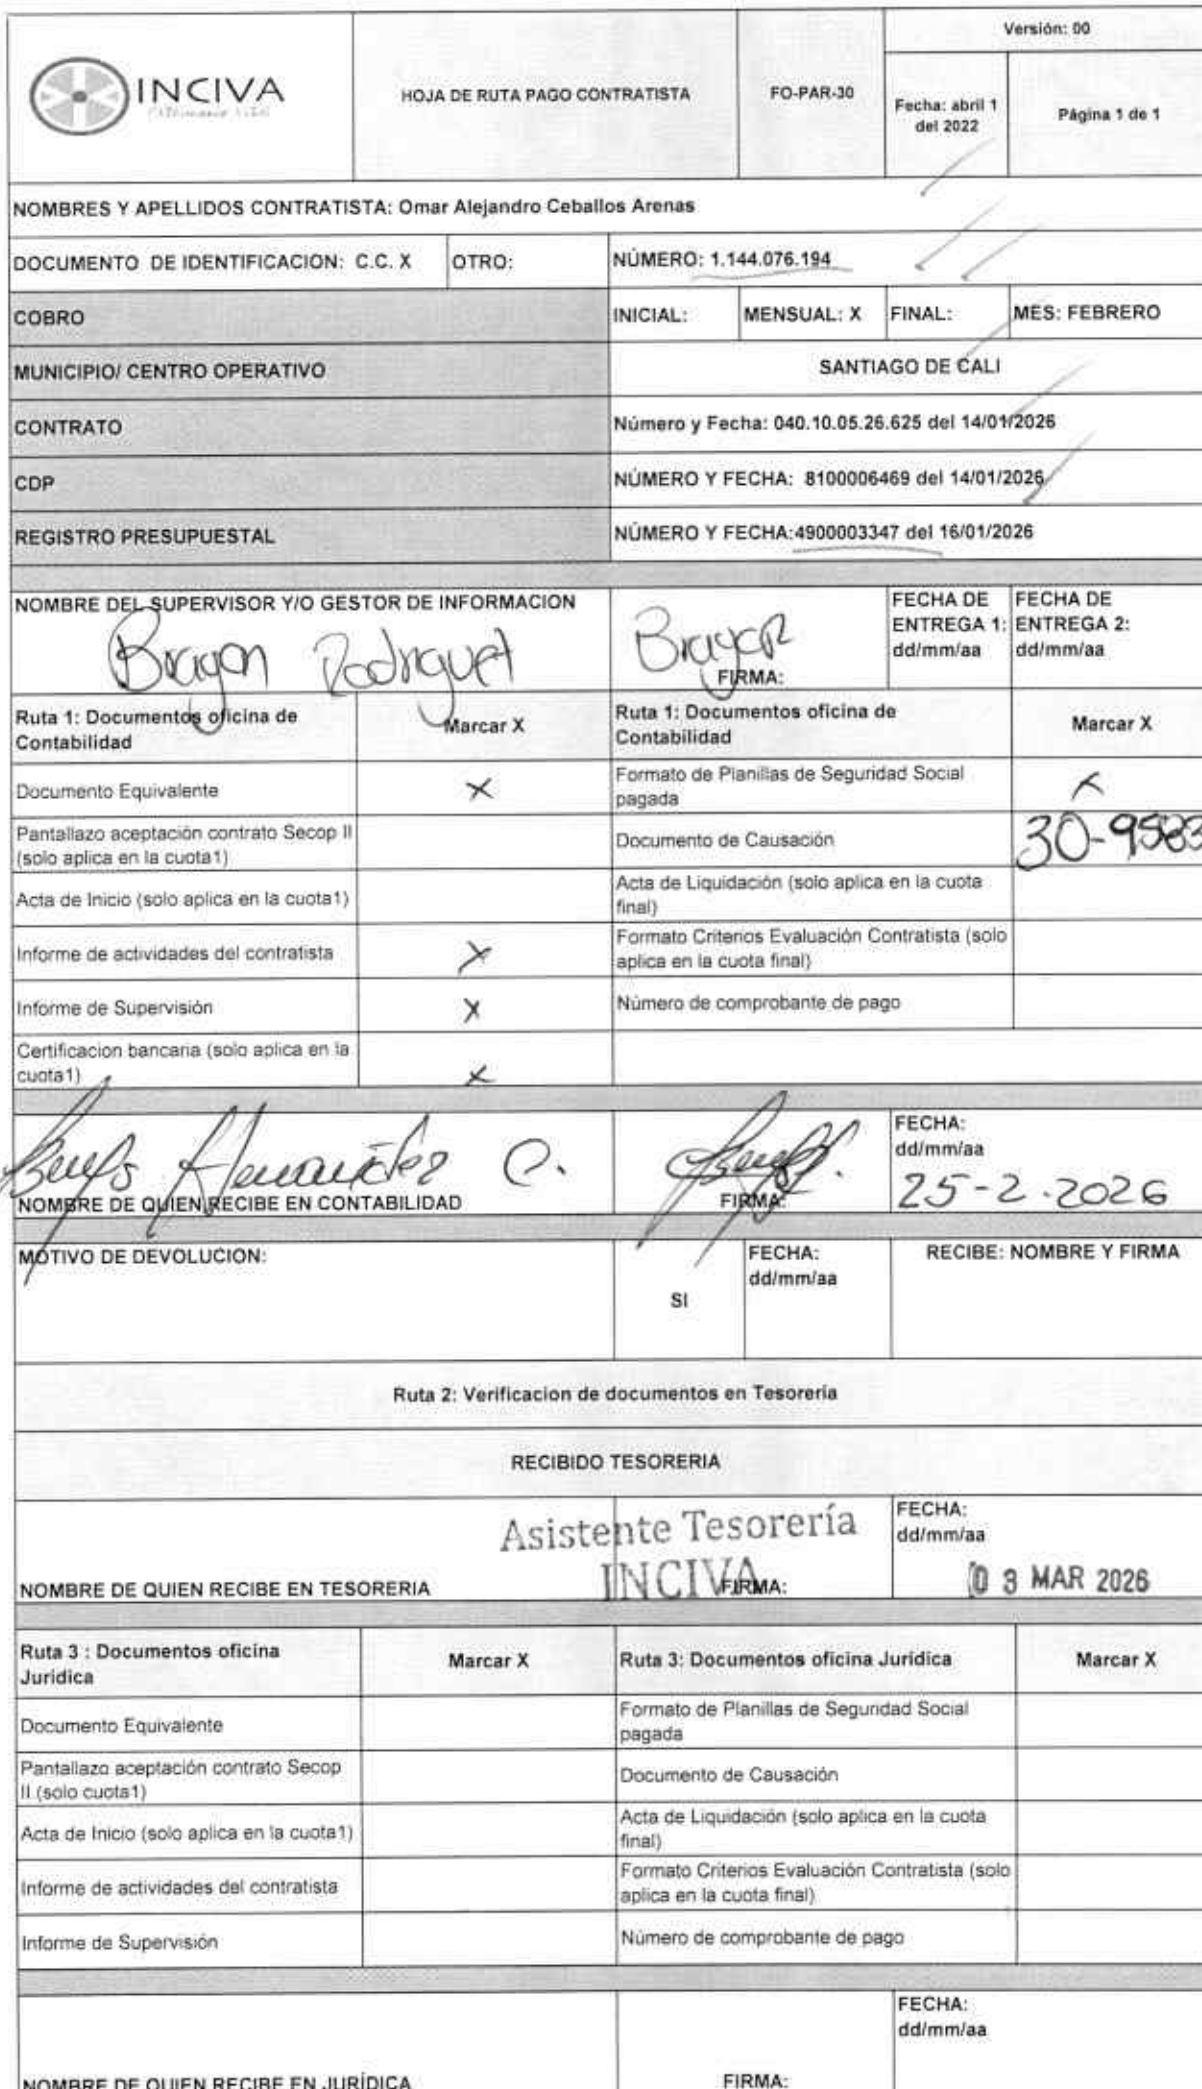 INCIVA
Patrimonio Vital
HOJA DE RUTA PAGO CONTRATISTA
FO-PAR-30
Versión: 00
Fecha: abril 1
del 2022
Página 1 de 1
NOMBRES Y APELLIDOS CONTRATISTA: Omar Alejandro Ceballos Arenas
DOCUMENTO DE IDENTIFICACION: C.C. X
OTRO:
NÚMERO: 1.144.076.194
COBRO
INICIAL:
MENSUAL: X
FINAL:
MES: FEBRERO
MUNICIPIO/ CENTRO OPERATIVO
SANTIAGO DE CALI
CONTRATO
Número y Fecha: 040.10.05.26.625 del 14/01/2026
CDP
NÚMERO Y FECHA: 8100006469 del 14/01/2026
REGISTRO PRESUPUESTAL
NÚMERO Y FECHA:4900003347 del 16/01/2026
NOMBRE DEL SUPERVISOR Y/O GESTOR DE INFORMACION
Brayan Rodriguez
Brayan
FIRMA:
FECHA DE
ENTREGA 1:
dd/mm/aa
FECHA DE
ENTREGA 2:
dd/mm/aa
Ruta 1: Documentos oficina de
Contabilidad
Marcar X
Ruta 1: Documentos oficina de
Contabilidad
Marcar X
Documento Equivalente
X
Formato de Planillas de Seguridad Social
pagada
X
Pantallazo aceptación contrato Secop II
(solo aplica en la cuota1)
Documento de Causación
30-9583
Acta de Inicio (solo aplica en la cuota1)
Acta de Liquidación (solo aplica en la cuota
final)
Informe de actividades del contratista
X
Formato Criterios Evaluación Contratista (solo
aplica en la cuota final)
Informe de Supervisión
X
Número de comprobante de pago
Certificacion bancaria (solo aplica en la
cuota1)
X
Hernández C.
NOMBRE DE QUIEN RECIBE EN CONTABILIDAD
FIRMA:
FECHA:
dd/mm/aa
25-2-2026
MOTIVO DE DEVOLUCION:
SI
FECHA:
dd/mm/aa
RECIBE: NOMBRE Y FIRMA
Ruta 2: Verificacion de documentos en Tesorería
RECIBIDO TESORERIA
Asistente Tesorería
INCIVA
NOMBRE DE QUIEN RECIBE EN TESORERIA
FIRMA:
FECHA:
dd/mm/aa
03 MAR 2026
Ruta 3 : Documentos oficina
Juridica
Marcar X
Ruta 3: Documentos oficina Juridica
Marcar X
Documento Equivalente
Formato de Planillas de Seguridad Social
pagada
Pantallazo aceptación contrato Secop
II (solo cuota1)
Documento de Causación
Acta de Inicio (solo aplica en la cuota1)
Acta de Liquidación (solo aplica en la cuota
final)
Informe de actividades del contratista
Formato Criterios Evaluación Contratista (solo
aplica en la cuota final)
Informe de Supervisión
Número de comprobante de pago
NOMBRE DE QUIEN RECIBE EN JURÍDICA
FIRMA:
FECHA:
dd/mm/aa